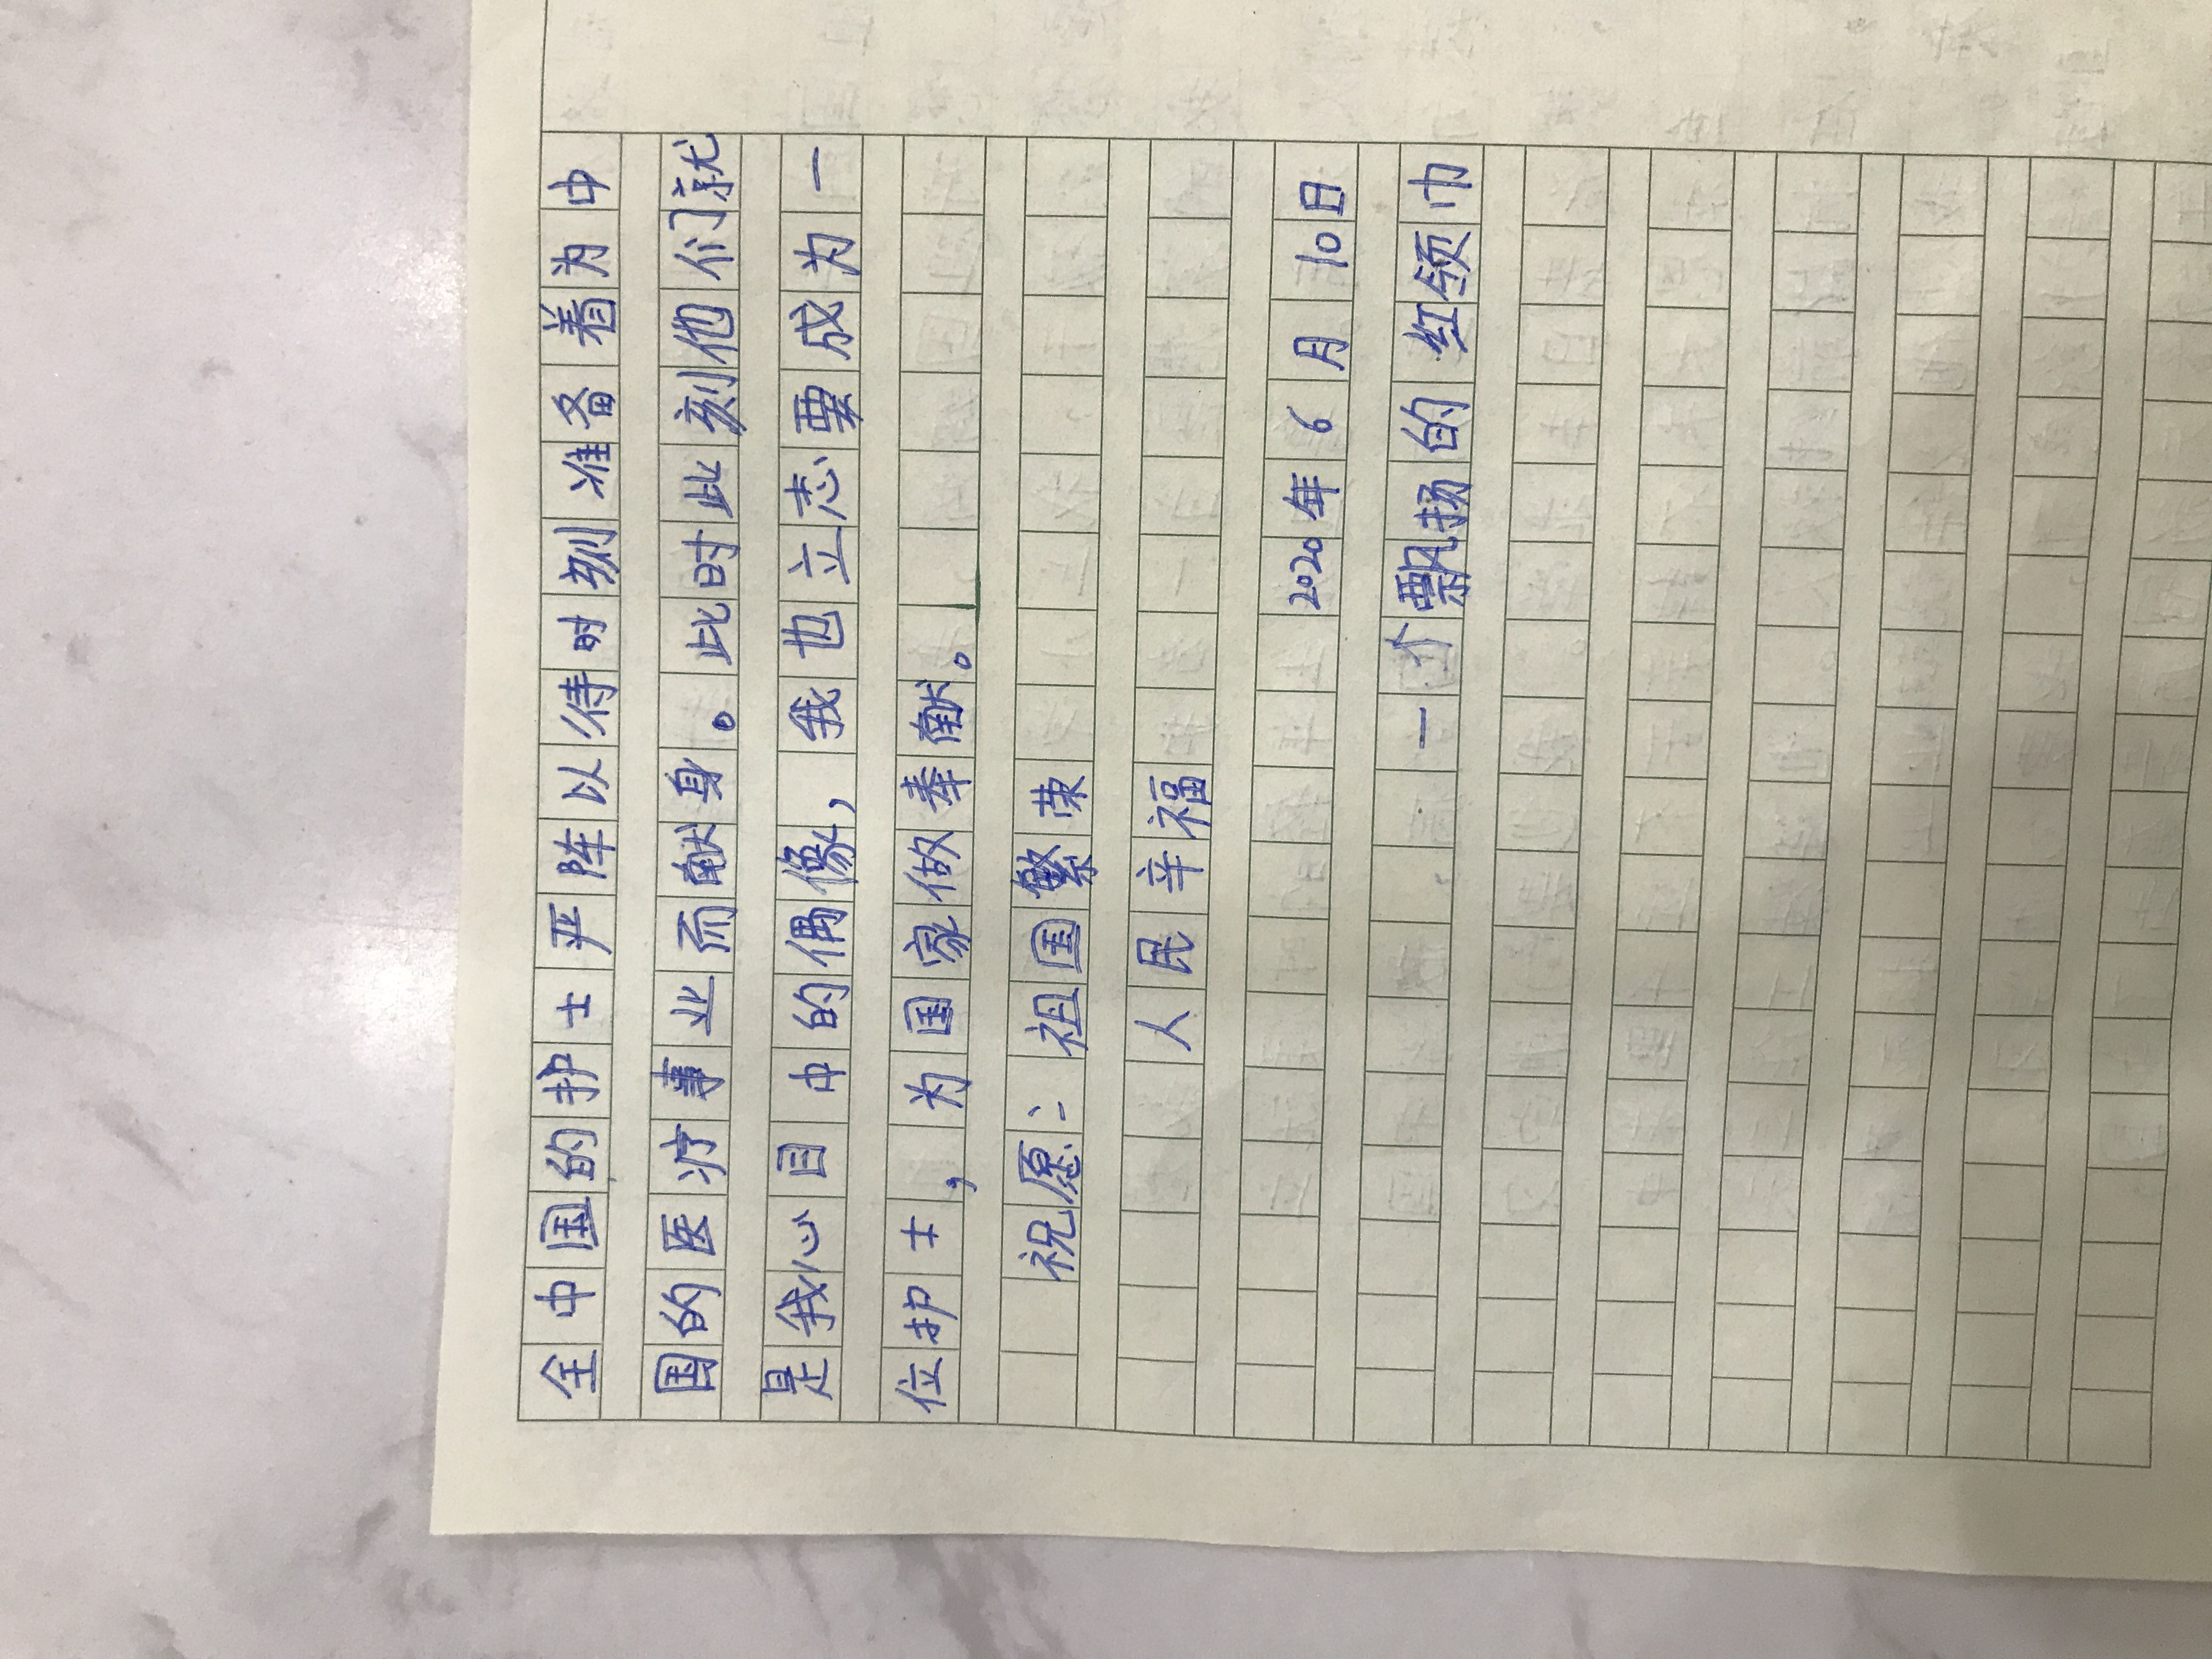 全中国的护士严阵以待时刻准备着为中
国的医疗事业而献身。此时此刻他们就
是我心目中的偶像，我也立志要成为一
位护士，为国家做奉献。
祝愿：祖国繁荣
人民辛福
2020年6月10日
一个飘扬的红领巾